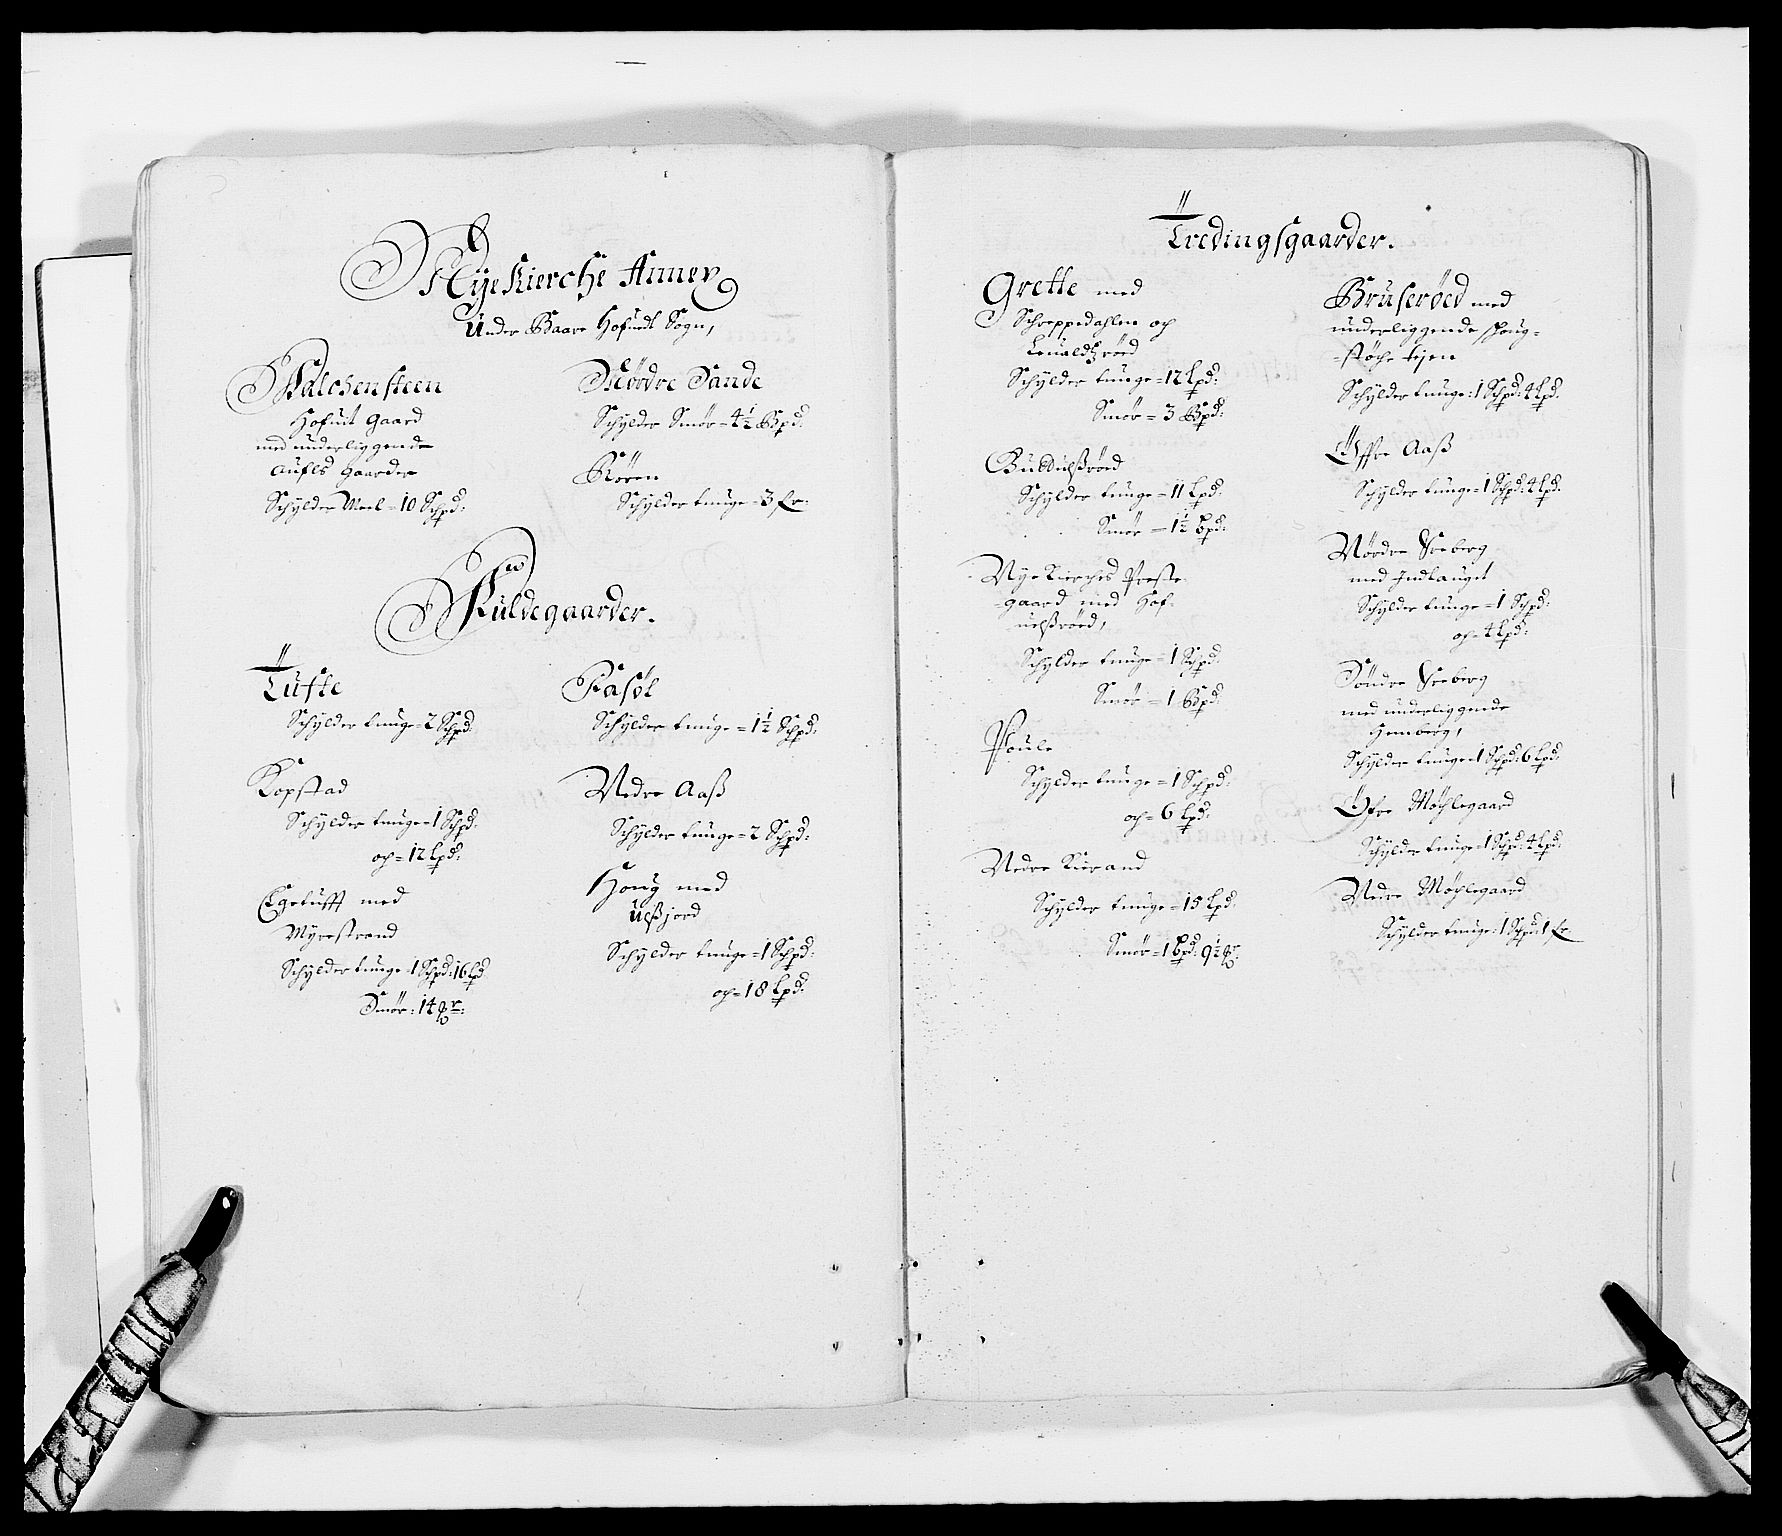 Nÿe Kierche Annex
Under Baare Hofuedt Sogn,
Falchensteen
Hofuit Gaard
med underliggende
Aufls Gaarder
Schylder Meel = 10 Schpd:
Nørdre Sande
Schylder Smør = 4½ Bpd:
Røren
Schylder tunge = 3 fr:
Fuldegaarder.
Tufte
Schylder tunge = 2 Schpd:
Kopstad
Schylder tunge = 1 Schpd:
och = 12 Lpd:
Egetufft med
Myrestrand
Schylder tunge = 1 Schpd: 16 Lpd
Smør: 14
Fasøl
Schylder tunge = 1½ Schpd:
Nedre Aaß
Schylder tunge = 2 Schpd:
Houg med
Ulßjord
Schylder tunge = 1 Schpd:
och = 18 Lpd:
Tredingsgaarder.
Grette med
Schreppedahlen och
Leualdßrøed
Schylder tunge = 12 Lpd:
Smør = 3 Bpd:
Gulduelßrøed
Schylder tunge = 11 Lpd:
Smør = 1½ Bpd:
Nye Kierches Preste-
-gaard med Hof-
uelßrøed,
Schylder tunge = 1 Schpd:
Smør = 1 Bpd:
Foule
Schylder tunge = 1 Schpd:
och = 6 Lpd:
Nedre Kierand
Schylder tunge = 15 Lpd:
Smør = 1 Bpd: 9½
Bruserøed med
underliggende schoug-
-støche Eyen
Schylder tunge: 1 Schpd: 4 Lpd:
Øffre Aaß
Schylder tunge = 1 Schpd: 4 Lpd:
Nørdre Seeberg
med Indlauget
Schylder tunge = 1 Schpd:
och = 4 Lpd:
Søndre Seeberg
med underliggende
Hemberg,
Schylder tunge = 1 Schpd: 6 Lpd:
Øfre Møchlegaard
Schylder tunge = 1 Schpd: 4 Lpd:
Nedre Møchlegaard
Schylder tunge: 1 Schpd: 1 fr